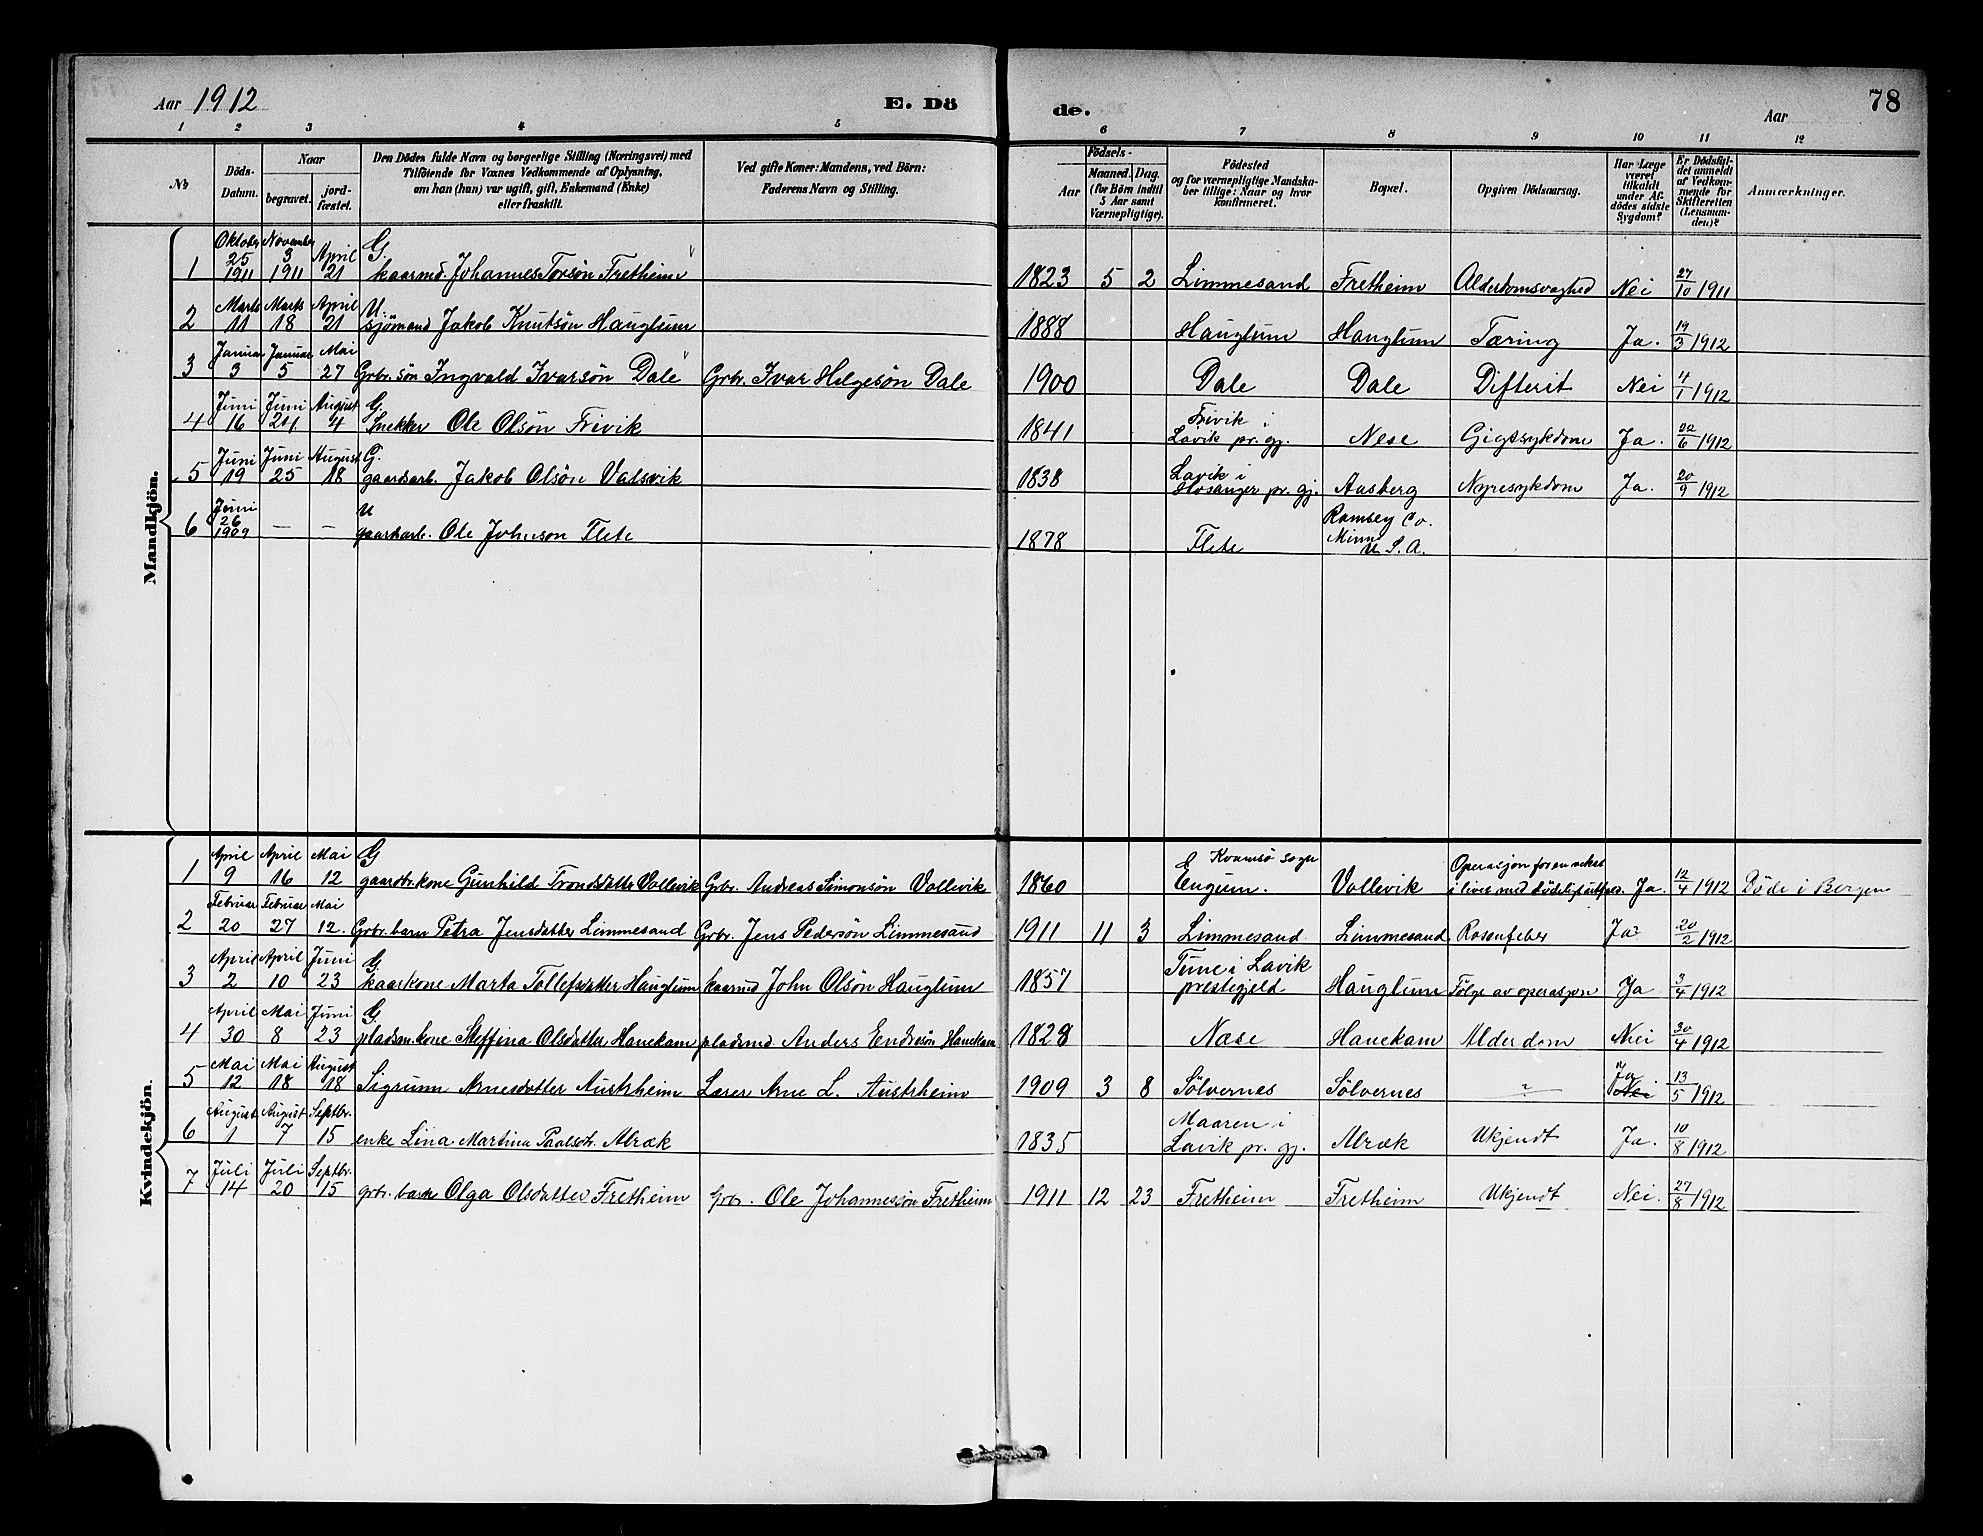 Aar 1912 E. Dö de. Aar 78
1 2 3 4 5 6 7 8 9 10 11 12
No Döds-Datum. Naar begravet. jordfæstet. Den Dödes fulde Navn og borgerlige Stilling (Næringsvei) med Tilföiende for Voxnes Vedkommende af Oplysning, om han (hun) var ugift, gift, Enkemand (Enke) eller fraskilt. Ved gifte Koner: Mandens, ved Börn: Faderens Navn og Stilling. Födsels- Aar Maaned. Dag. (for Börn indtil 5 Aar samt Værnepligtige). Födested og for værnepligtige Mandskaber tillige: Naar og hvor konfirmeret. Bopæl. Opgiven Dödsaarsag. Har Læge været tilkaldt under Afdödes sidste Sygdom? Er Dödsfaldet anmeldt af Vedkommende for Skifteretten (Lensmanden)? Anmærkninger.
Mandkjön.
1 Oktober 25 1911 November 3 1911 April 21 G. kaarmd. Johannes Torsön Fretheim 1823 5 2 Limmesand Fretheim Alderdomsvaghed Nei 27/10 1911
2 Marts 11 Marts 18 April 21 U. sjömand Jakob Knutsön Hauglum 1888 Hauglum Hauglum Tæring Ja. 19/3 1912
3 Januar 3 Januar 5 Mai 27 Grbr. sön Ingvald Ivarsön Dale Grbr. Ivar Helgesön Dale 1900 Dale Dale Difterit Nei 4/1 1912
4 Juni 16 Juni 24. August 4 G. Snekker Ole Olsön Frivik 1841 Frivik i Lavik pr. gj. Nese Gigtsykdom Ja. 22/6 1912
5 Juni 19 Juni 25 August 18 G. gaardsarb. Jakob Olsön Valsvik 1838 Lavik i Evsanger pr. gj. Aasberg Nyresykdom Ja. 20/9 1912
6 Juni 26 1909 — — U gaardsarb. Ole Johnson Flete 1878 Flete Ramsey Co. Minn U. S. A.
Kvindekjön.
1 April 9 April 16 Mai 12 G gaardbr. kone Gunhild Trondsdatter Vollevik Grbr. Andreas Simonsön Vollevik 1860 Engum. Kvamsö sogn Vollevik Operasjon for en vekst i livet med dödelig utfald. Ja. 12/4 1912 Döde i Bergen
2 Februar 20 Februar 27 Mai 12. Grbr. barn Petra Jensdatter Limmesand Grbr. Jens Pedersön Limmesand 1911 11 3 Limmesand. Limmesand Rosenfeber Ja 20/2 1912
3 April 2 April 10 Juni 23 G kaarkone Marta Tollefsdatter Hauglum kaarmd John Olsön Hauglum 1857 Tune i Lavik prestegjeld Hauglum Fölge av operasjon Ja 3/4 1912
4 April 30 Mai 8 Juni 23 G. pladsm. kone Steffina Olsdatter Hanekam pladsmd. Anders Endresön Hanekam 1828 Næse Hanekam Alderdom Nei 30/4 1912
5 Mai 12 Mai 18 August 18 Sigrunn Arnesdatter Austrheim Lærer Arne L. Austrheim 1909 3 8 Sölvernes Sölvernes ? Ja Nei 13/5 1912
6 August 1 August 7 Septbr. 15 enke Lina Martina Paalsdt. Alræk 1835 Maaren i Lavik pr. gj. Alræk Ukjendt Ja. 10/8 1912
7 Juli 14 Juli 20 Septbr. 15 grbr. barn Olga Olsdatter Fretheim Grbr. Ole Johannessön Fretheim 1911 12 23 Fretheim Fretheim Ukjendt Nei. 27/8 1912